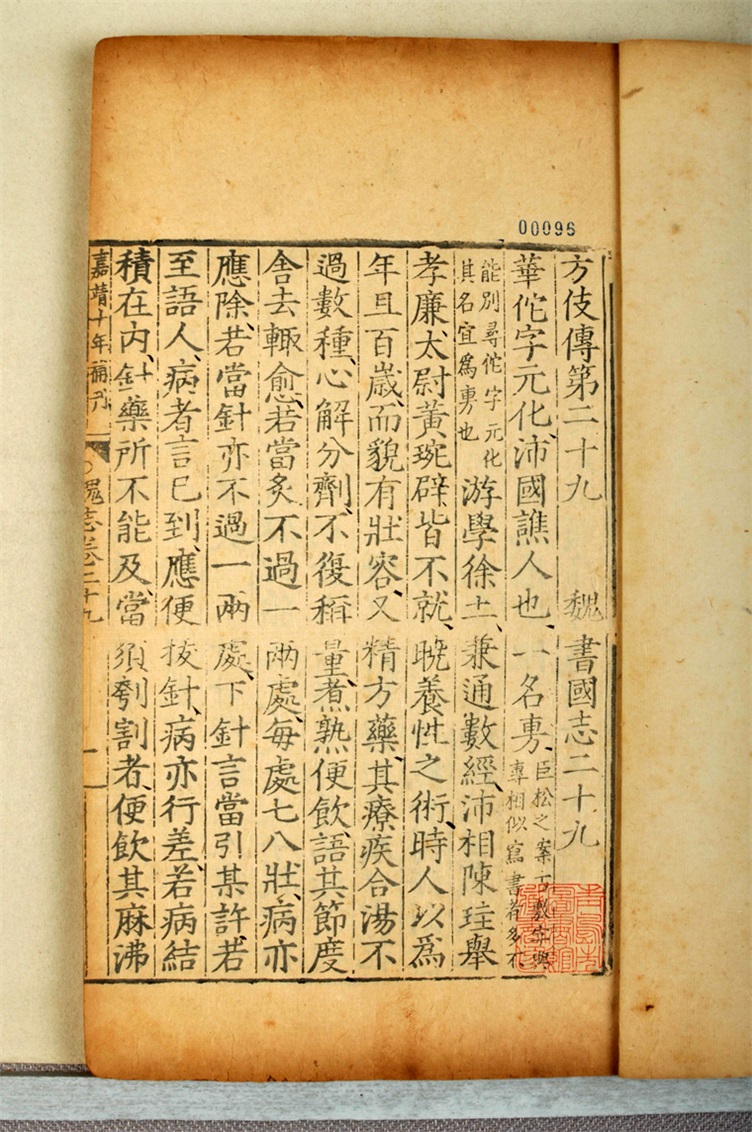 00096
方伎傳第二十九 魏書國志二十九
華佗字元化沛國譙人也一名旉
臣松之案古敷字與
專相似寫書者多不
能別尋佗字元化
其名宜爲旉也
游學徐土兼通數經沛相陳珪舉
孝廉太尉黃琬辟皆不就曉養性之術時人以爲
年且百歲而貌有壯容又精方藥其療疾合湯不
過數種心解分劑不復稱量煮熟便飲語其節度
舍去輒愈若當灸不過一兩處每處七八壯病亦
應除若當針亦不過一兩處下針言當引某許若
至語人病者言已到應便拔針病亦行差若病結
積在內針藥所不能及當須刳割者便飲其麻沸
嘉靖十年補刊 魏志卷二十九 一